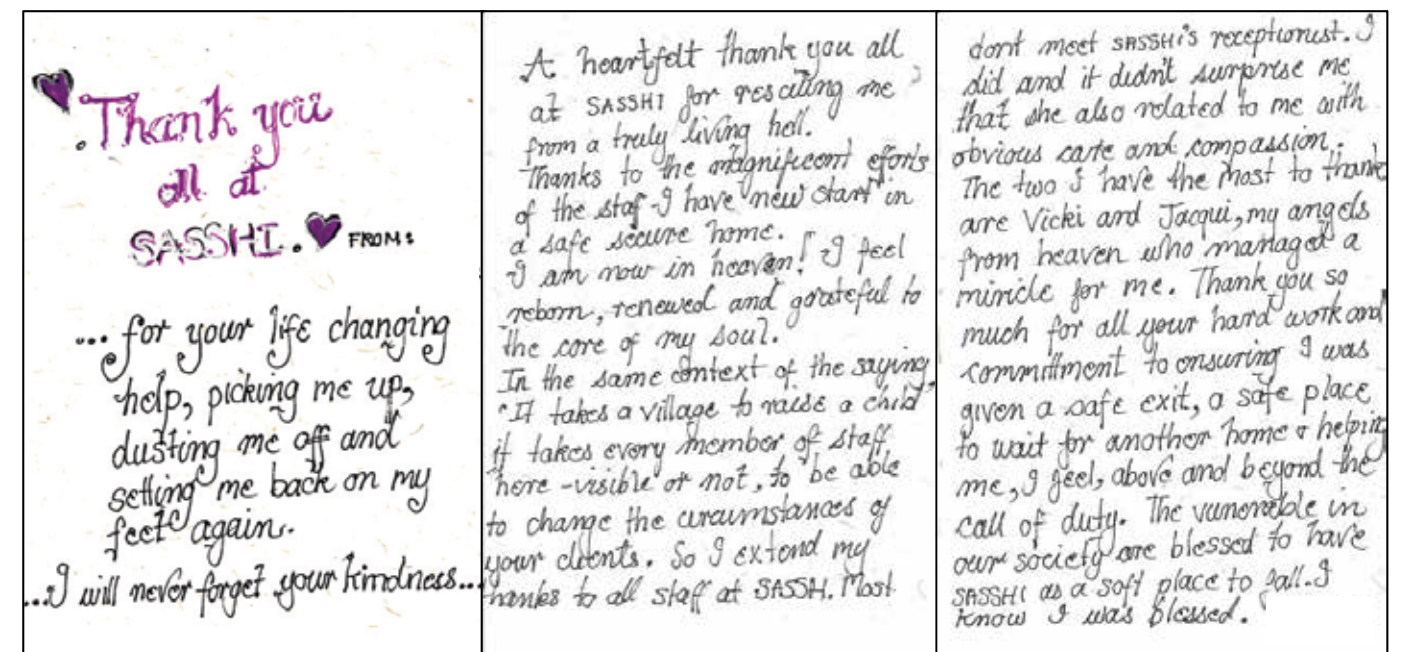 Thank you
all at
SASSHI. FROM:
... for your life changing
help, picking me up,
dusting me off and
setting me back on my
feet again.
...I will never forget your kindness...
A heartfelt thank you all
at SASSHI for rescuing me
from a truly living hell.
Thanks to the magnificent efforts
of the staf I have new start in
a safe secure home.
I am now in heaven! I feel
reborn, renewed and grateful to
the core of my soul.
In the same context of the saying
"It takes a village to raise a child"
it takes every member of staff
here - visible or not, to be able
to change the circumstances of
your clients. So I extend my
thanks to all staff at SASSH. Most
dont meet SASSHI's receptionist. I
did and it didn't surprise me
that she also related to me with
obvious care and compassion.
The two I have the most to thank
are Vicki and Jacqui, my angels
from heaven who managed a
miricle for me. Thank you so
much for all your hard work and
committment to ensuring I was
given a safe exit, a safe place
to wait for another home & helping
me, I feel, above and beyond the
call of duty. The vunerable in
our society are blessed to have
SASSHI as a soft place to fall. I
know I was blessed.